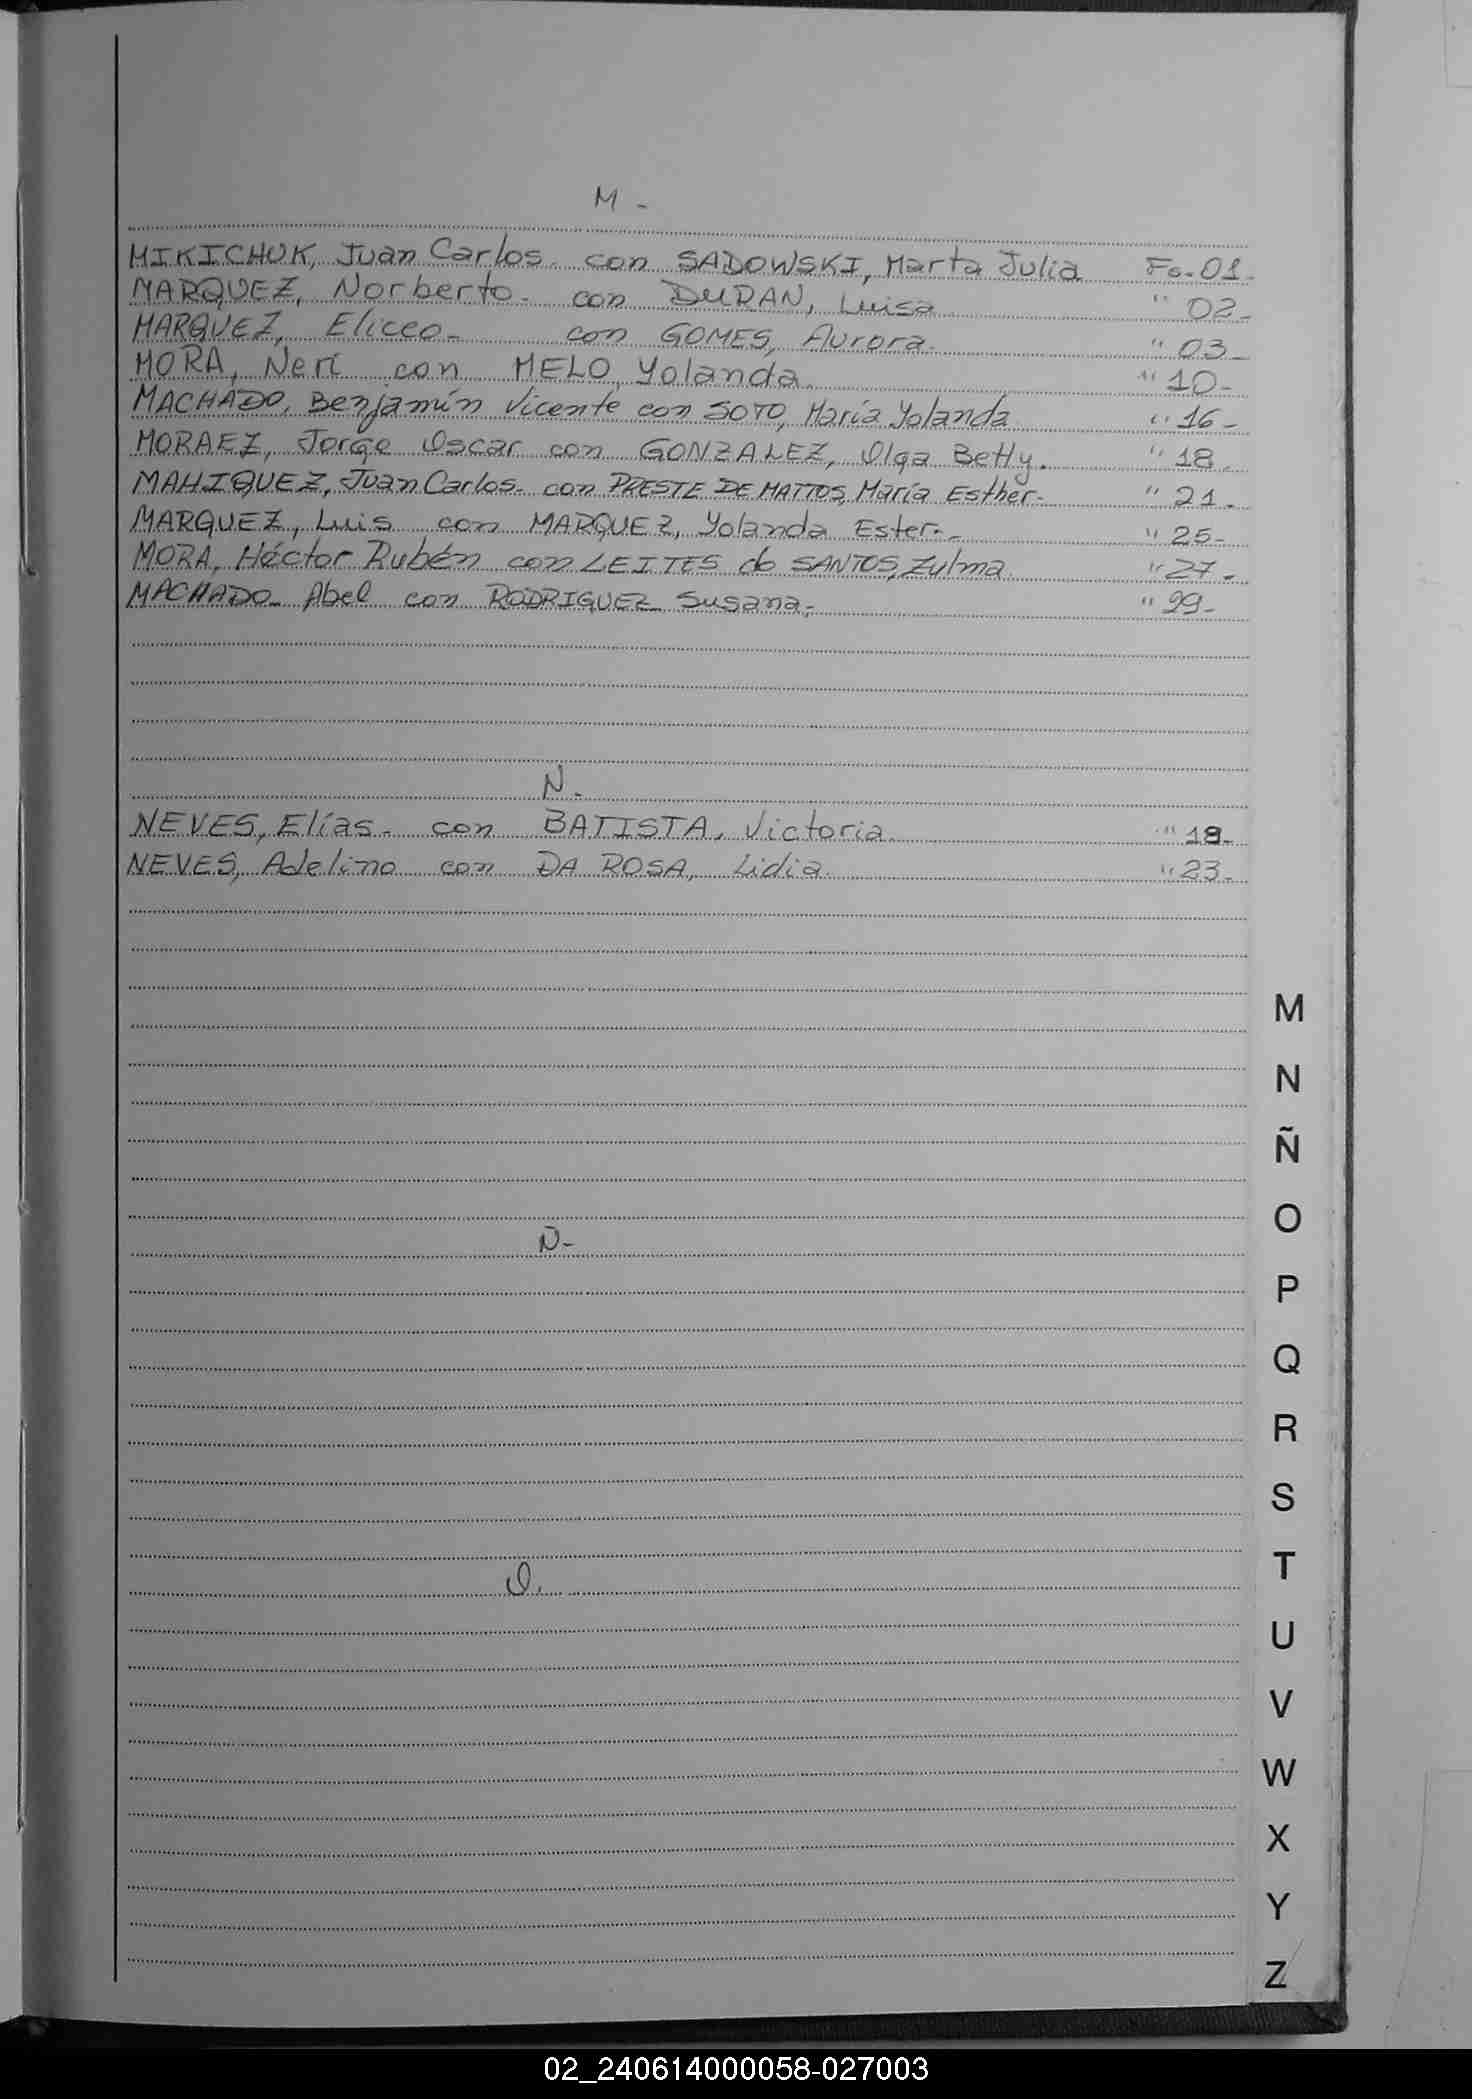 M -
MIKICHUK, Juan Carlos. con SADOWSKI, Marta Julia Fo-01-
MARQUEZ, Norberto- con DURAN, Luisa " 02-
MARQUEZ, Eliceo- con GOMES, Aurora. " 03-
MORA, Neri con MELO, Yolanda. " 10-
MACHADO, Benjamín Vicente con SOTO, María Yolanda " 16-
MORAEZ, Jorge Oscar con GONZALEZ, Olga Betty. " 18.
MAHIQUEZ, Juan Carlos- con PRESTE DE MATTOS, María Esther- " 21-
MARQUEZ, Luis con MARQUEZ, Yolanda Ester.- " 25-
MORA, Héctor Rubén con LEITES do SANTOS, Zulma " 27-
MACHADO- Abel con RODRIGUEZ Susana,- " 29-
N-
NEVES, Elías- con BATISTA, Victoria. " 19-
NEVES, Adelino con DA ROSA, Lidia. " 23-
Ñ-
O.
M
N
Ñ
O
P
Q
R
S
T
U
V
W
X
Y
Z
02_240614000058-027003